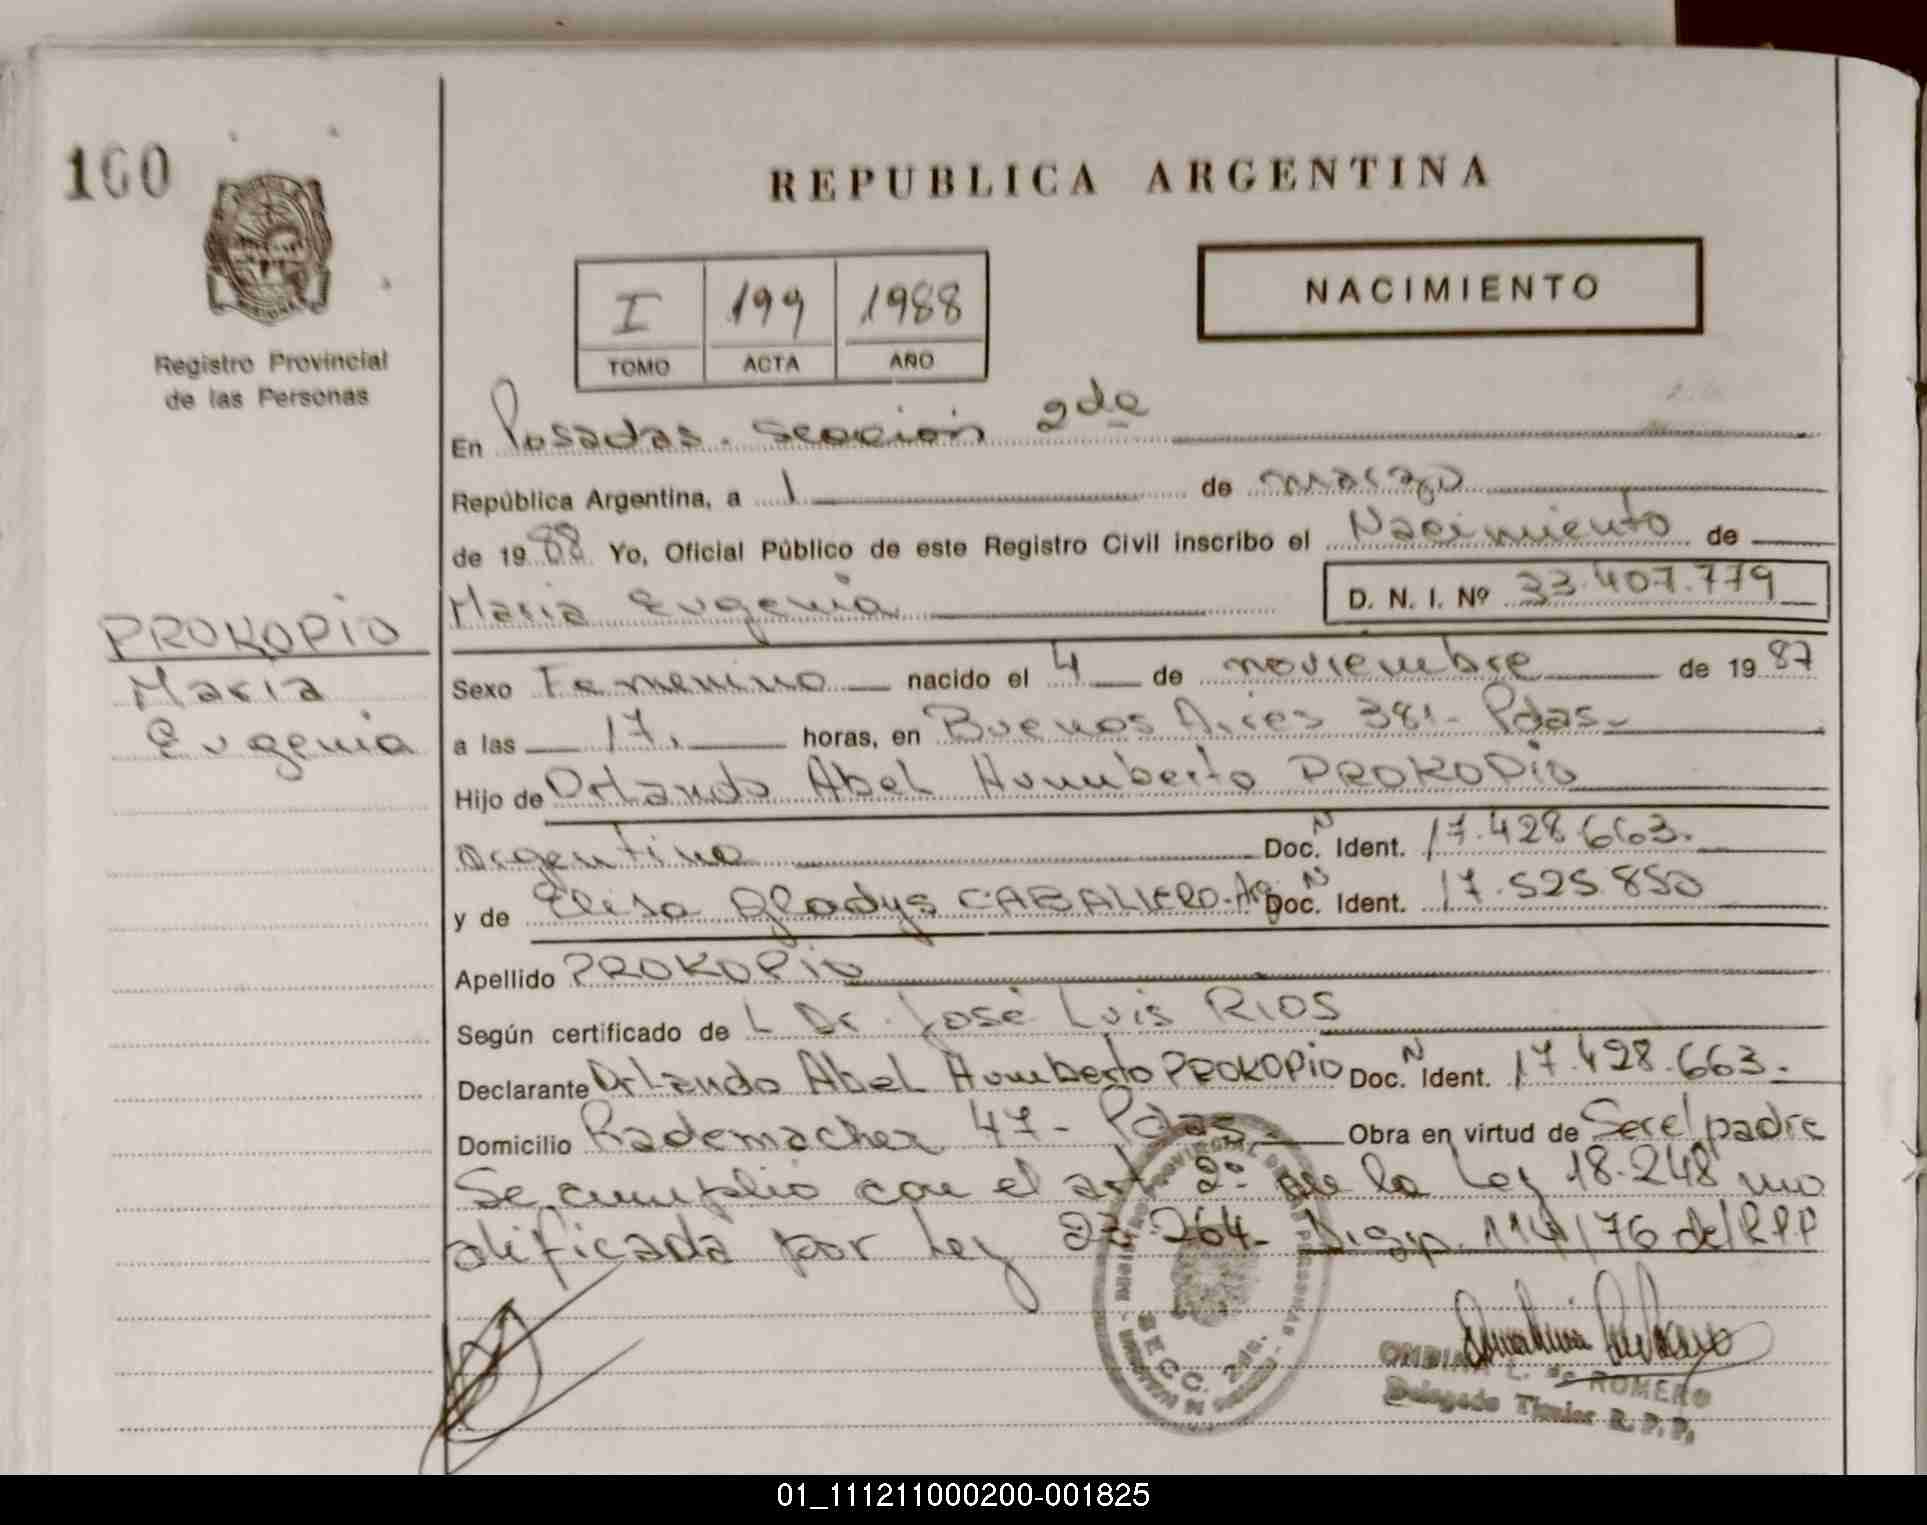 100
REPUBLICA ARGENTINA
NACIMIENTO
I 199 1988
TOMO ACTA AÑO
Registro Provincial
de las Personas
En Posadas. Sección 2da
República Argentina, a 1 de marzo
de 1988 Yo, Oficial Público de este Registro Civil inscribo el Nacimiento de
Maria Eugenia D. N. I. Nº 33.407.779
PROKOPIO
Maria
Eugenia
Sexo Femenino nacido el 4 de noviembre de 1987
a las 17. horas, en Buenos Aires 381- Pdas-
Hijo de Orlando Abel Humberto PROKOPIO
Argentino Doc. N Ident. 17.428.663.
y de Elisa Gladys CABALLERO-Ag Doc. N Ident. 17.525.850
Apellido PROKOPIO
Según certificado de L Dr. José Luis RIOS
Declarante Orlando Abel Humberto PROKOPIO Doc. N Ident. 17.428.663.
Domicilio Rademacher 47- Pdas- Obra en virtud de Ser el padre
Se cumplio con el art 2º de la Ley 18.248 mo
dificada por Ley 23.264- Disp. 114/76 del R.P.P
SECC. 2da.
L. de ROMERO
Delegado Titular R. P. P.
01_111211000200-001825